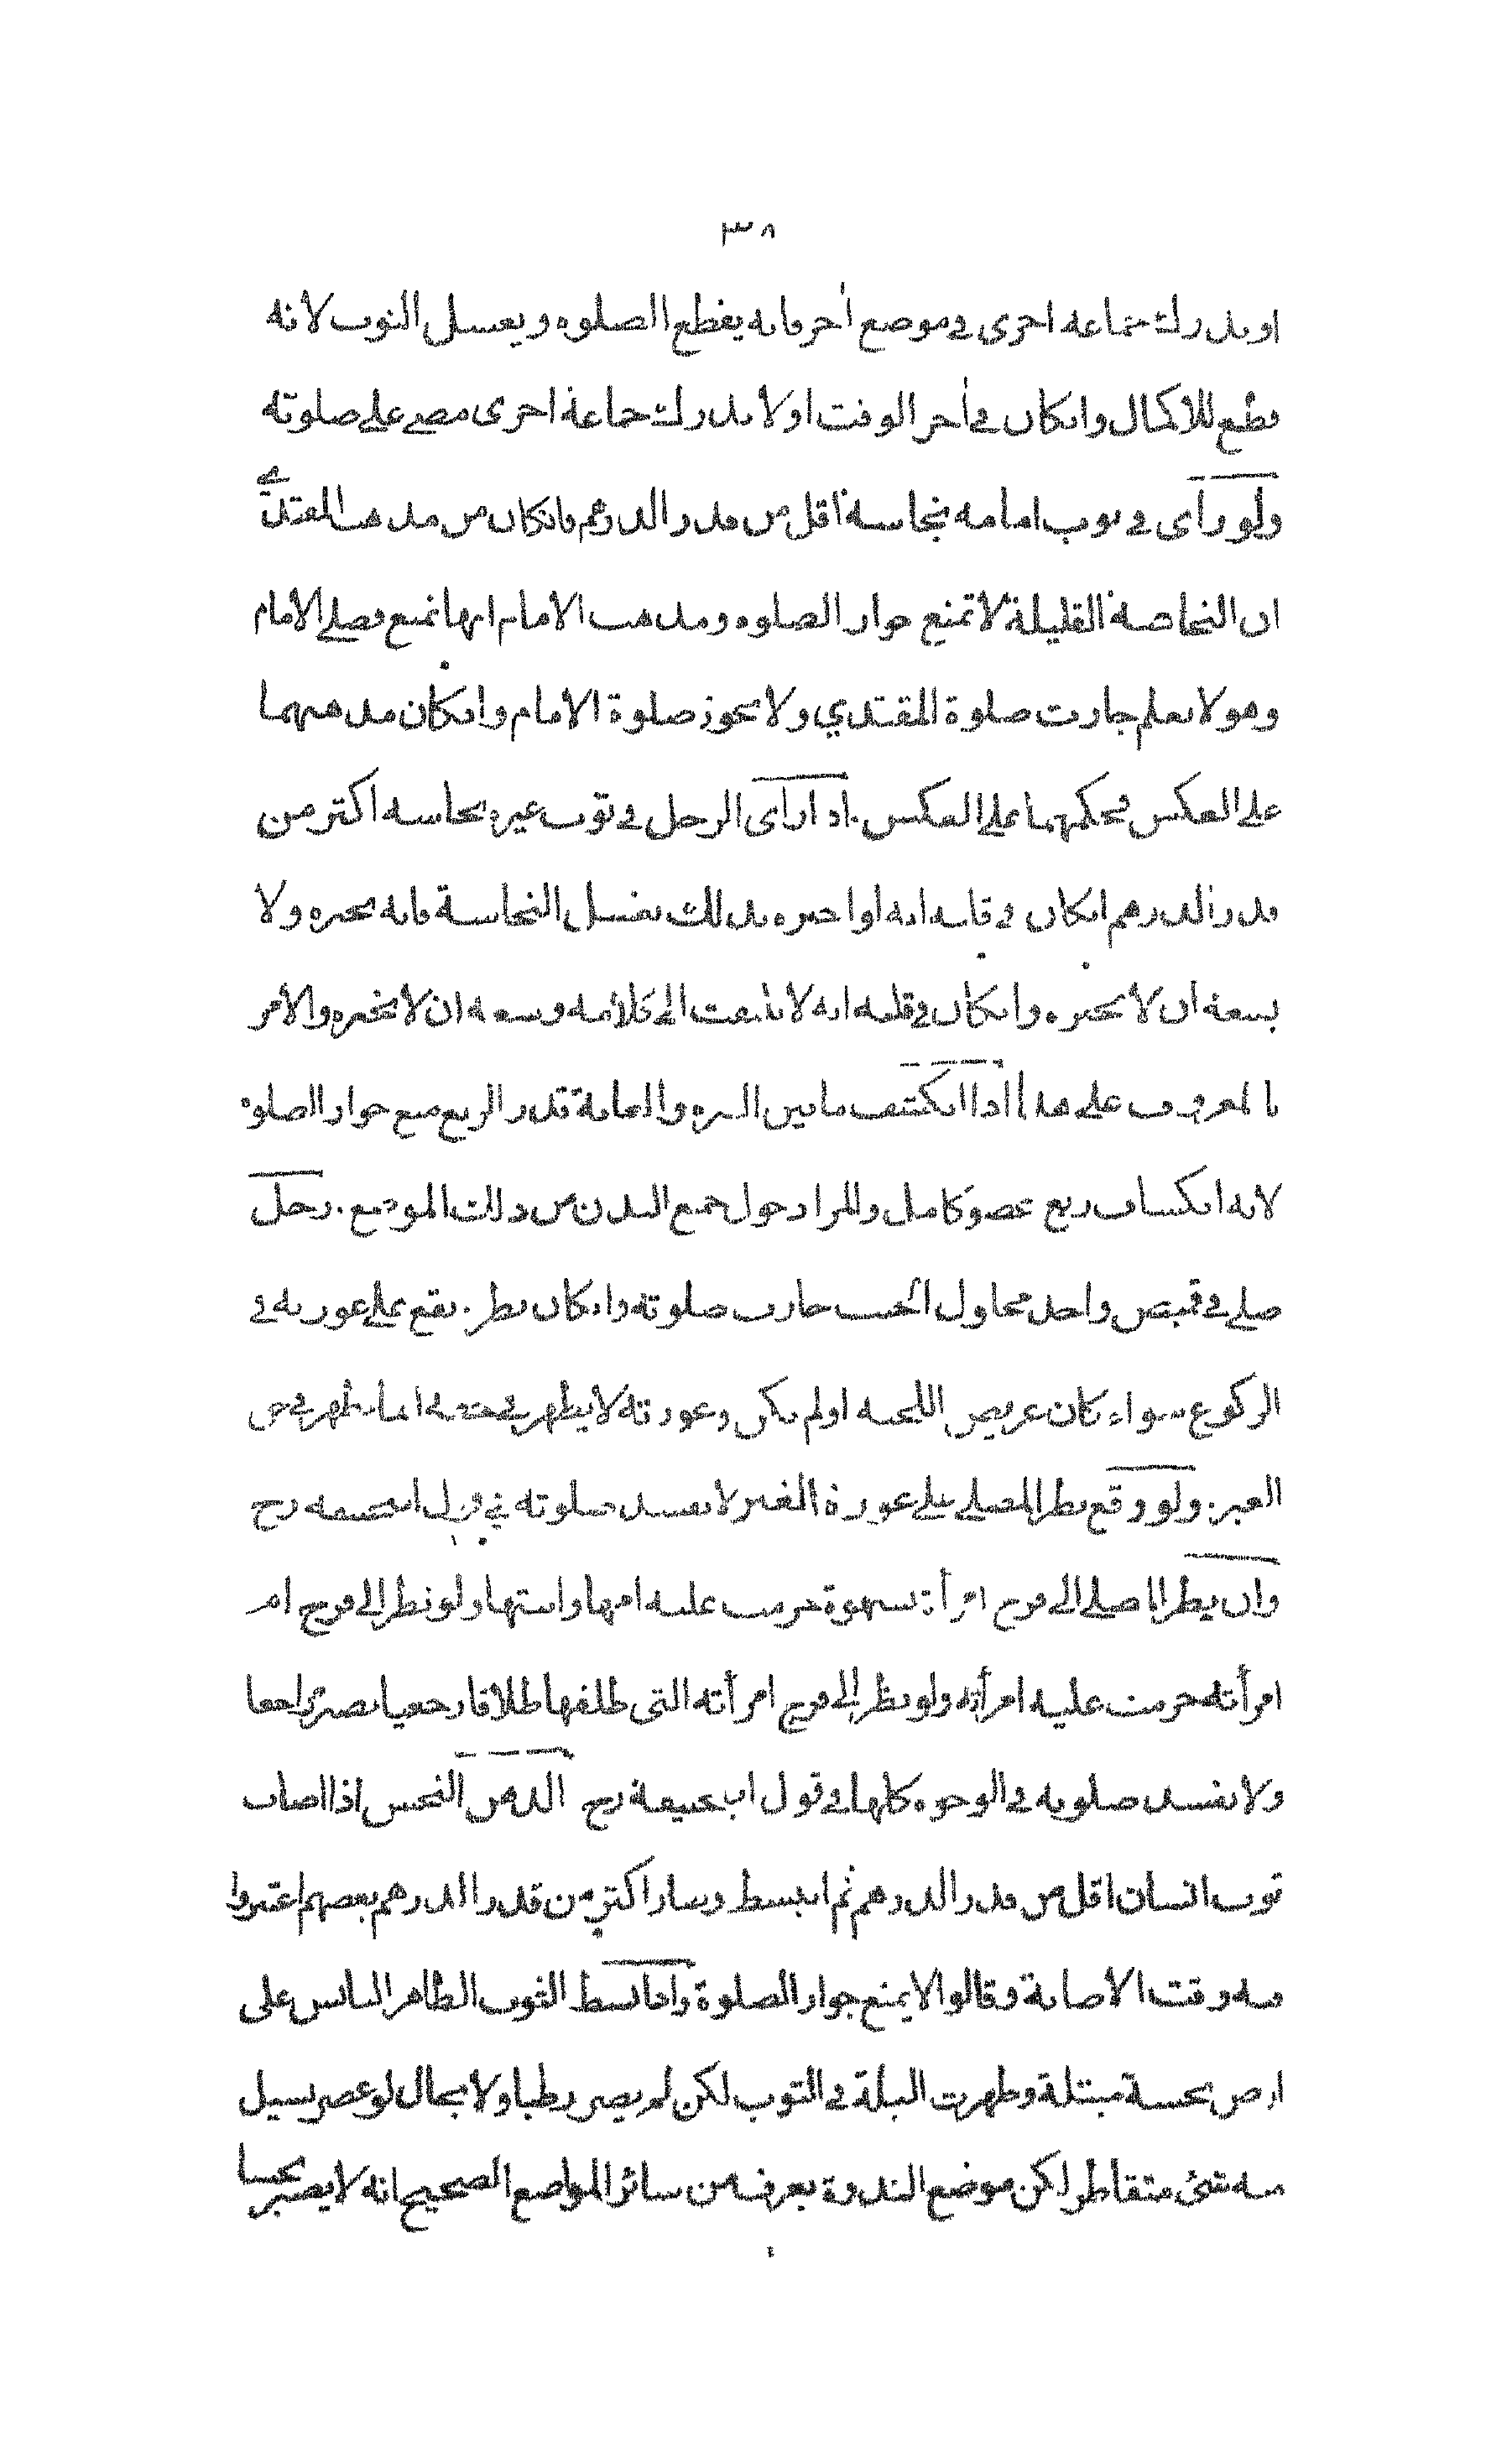 ٣٨
او يدرك جماعة اخرى في موضع آخر فانه يقطع الصلوة ويغسل الثوب لانه
قطع للاكمال وان كان في آخر الوقت او لا يدرك جماعة اخرى مضى على صلوته
ولو رأى في ثوب امامه نجاسة اقل من قدر الدرهم فان كان من مذهب المقتدي
ان النجاسة القليلة لا تمنع جواز الصلوة ومذهب الامام انها تمنع فصلى الامام
وهو لا يعلم جازت صلوة المقتدي ولا يجوز صلوة الامام وان كان مذهبهما
على العكس فحكمهما على العكس . اذا رأى الرجل في ثوب غيره نجاسة اكثر من
قدر الدرهم ان كان في قلبه انه لو اخبره بذلك يغسل النجاسة فانه يخبره ولا
يسعه ان لا يخبره وان كان في قلبه انه لا يلتفت الى كلامه وسعه ان لا يخبره والامر
بالمعروف على هذا اذا انكشف ما بين السرة والعانة قدر الربع منع جواز الصلوة
لانه انكشاف ربع عضو كامل والمراد حول جميع البدن من ذلك الموضع . رجل
صلى في قميص واحد محلول الجيب جازت صلوته وان كان نظره يقع على عورته في
الركوع سواء كان عريض اللحية او لم يكن وعورته لا يظهر في حقه انما يظهر في حق
الغير . ولو وقع نظر المصلي على عورة الغير لا يفسد صلوته في قول ابي حنيفة رح
وان نظر المصلي الى فرج امرأة بشهوة حرمت عليه امها وابنتها ولو نظر الى فرج ام
امرأته حرمت عليه امرأته ولو نظر الى فرج امرأته التي طلقها طلاقا رجعيا يصير مراجعا
ولا يفسد صلوته في الوجوه كلها في قول ابي حنيفة رح الدهن النجس اذا اصاب
ثوب انسان اقل من قدر الدرهم ثم انبسط وصار اكثر من قدر الدرهم بعضهم اعتبروا
فيه وقت الاصابة وقالوا لا يمنع جواز الصلوة واذا بسط الثوب الطاهر اليابس على
ارض نجسة مبتلة وظهرت البلة في الثوب لكن لم يصر رطبا ولا بحال لو عصر يسيل
منه شئ متقاطر لكن موضع الندوة يعرف من سائر المواضع الصحيح انه لا يصير نجسا